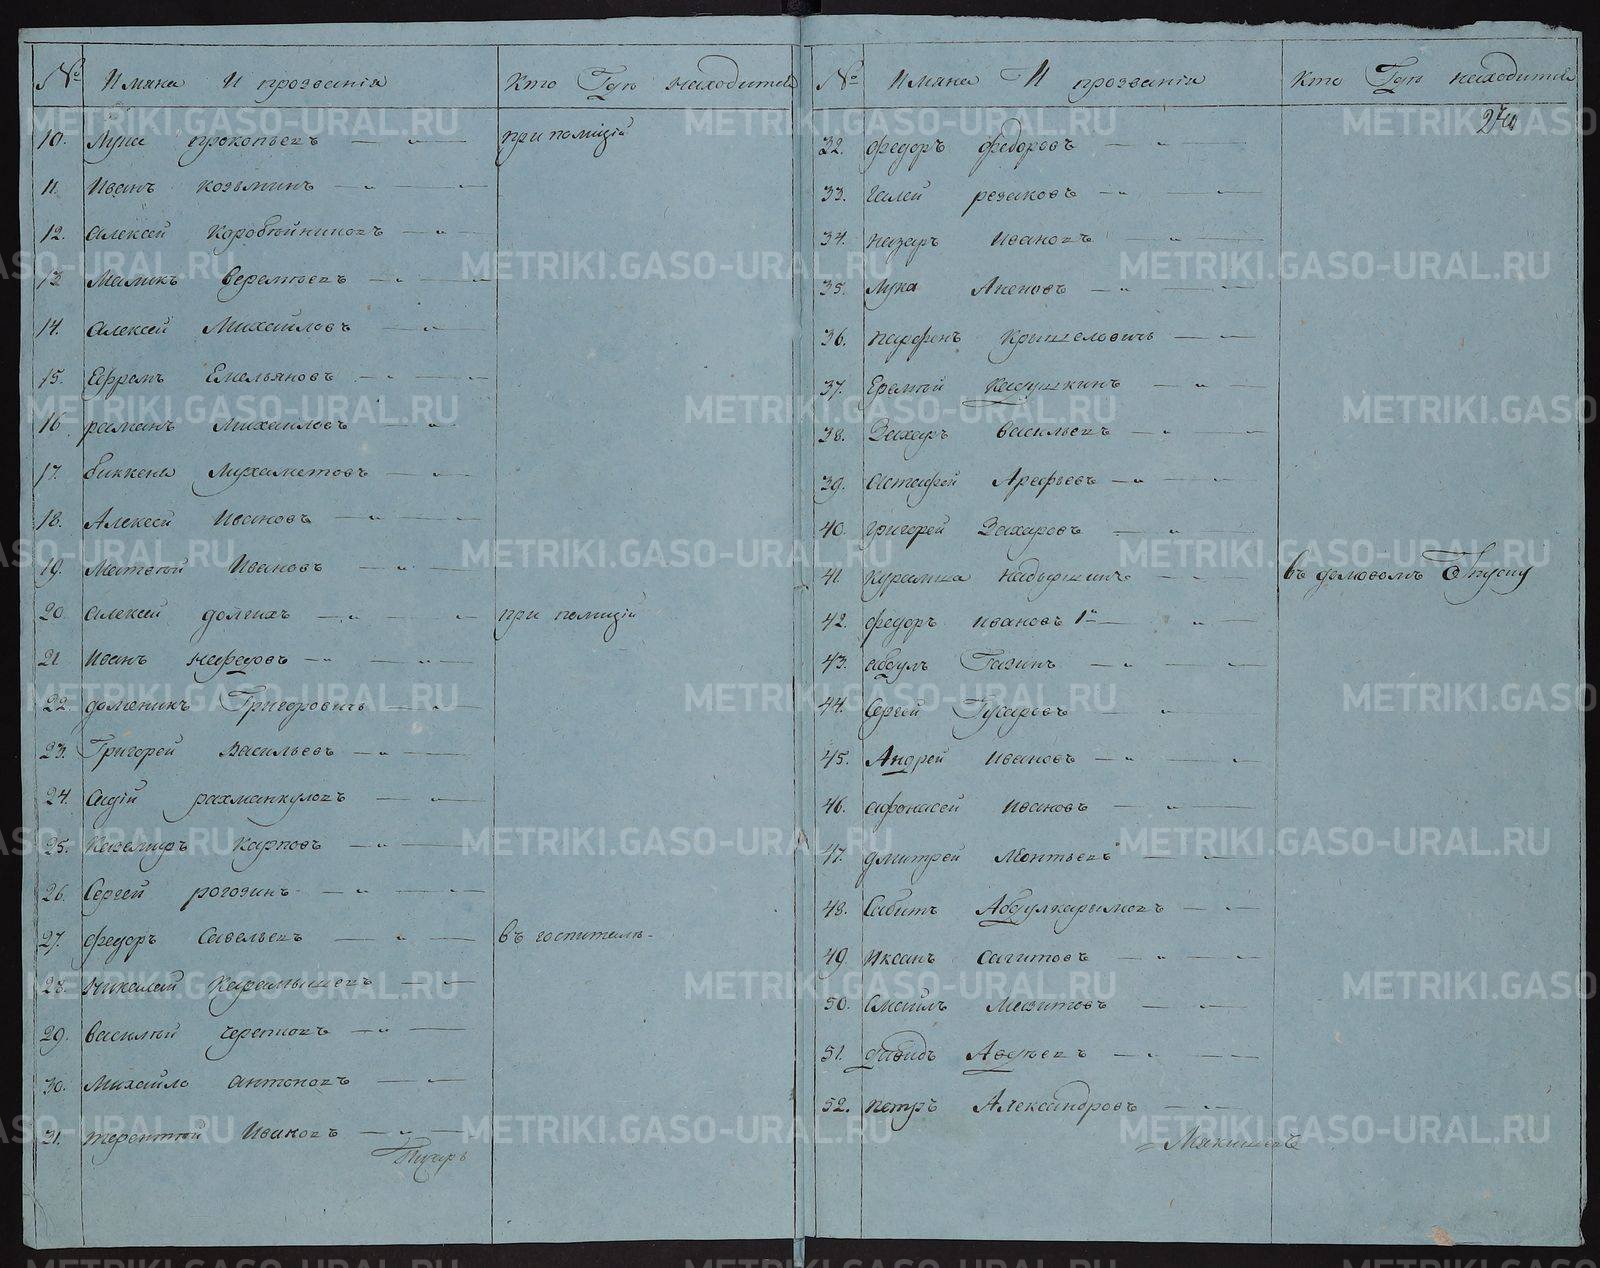 № Имяна И прозвания Кто Где находится
10. Лука прокопьевъ при полицiй
11. Иванъ козьминъ
12. алексей Коробейниковъ
13. Маликъ
14. алексей Михайловъ
15. Ефремъ Емельяновъ
16. романъ Михаиловъ
17. биккена Мухаметовъ
18. Алексей Ивановъ
19. Матвей Ивановъ
20. алексей долгихъ при полицiй
21. Иванъ нефедовъ
22. доменикъ Григоровичь
23. Григорей Васильевъ
24. Садiй рахманкуловъ
25. Каземиръ Карповъ
26. Сергей рогозинъ
27. федоръ Савельевъ въ госпитале
28. Николай Карамышевъ
29. василей черепновъ
30. Михайло антоновъ
31. терентей Ивановъ
№ Имяна И прозвания Кто Где находится
32. федоръ федоровъ
33. Галей резяковъ
34. назаръ Ивановъ
35. Лука
36. парфенъ
37. Еремей Кадушкинъ
38. Захаръ васильевъ
39. астафей Арефьевъ
40. григорей Захаровъ
41. Курамша Надыршинъ въ домовомъ Отпуску
42. федоръ ивановъ 1й
43. абдулъ Гагинъ
44. Сергей Гусаровъ
45. Андрей Ивановъ
46. афонасей Ивановъ
47. дмитрей Леонтьевъ
48. Сабитъ Абдулкарымовъ
49. Иксанъ сагитовъ
50. Смаилъ Мавитовъ
51. давидъ Авдеевъ
52. петръ Александровъ
METRIKI.GASO-URAL.RU